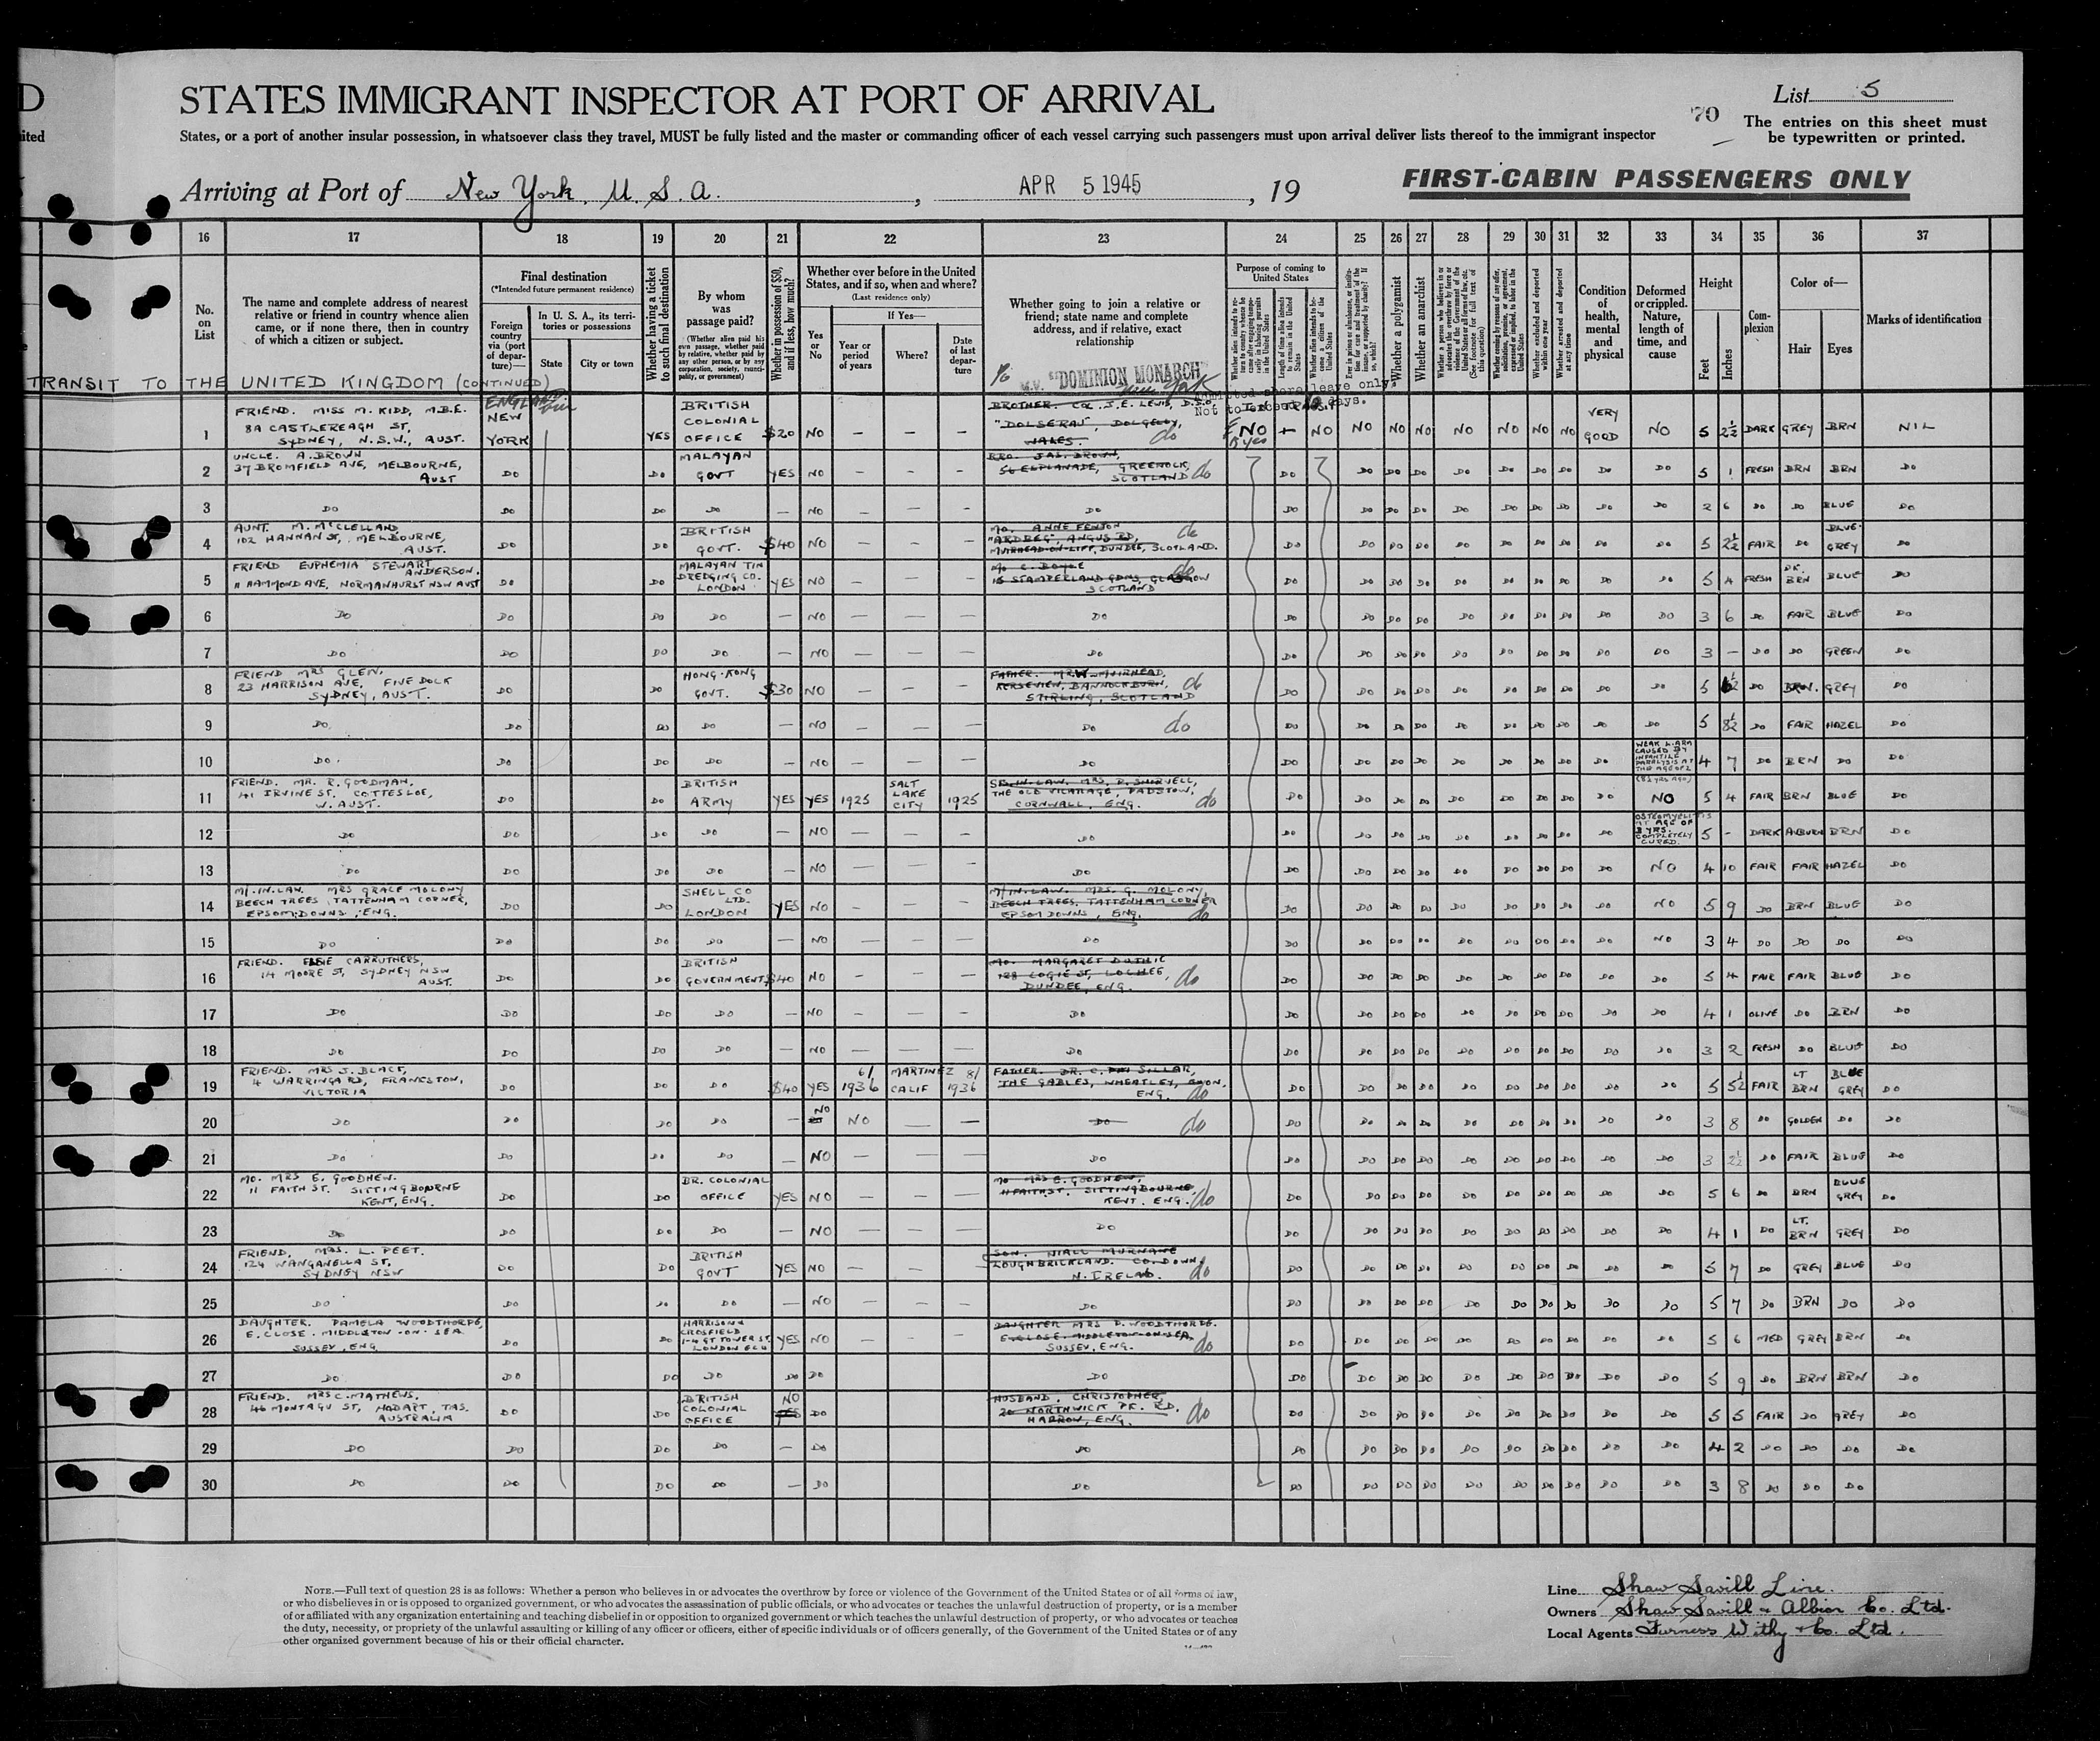 D
STATES IMMIGRANT INSPECTOR AT PORT OF ARRIVAL
70
List 5
ited
States, or a port of another insular possession, in whatsoever class they travel, MUST be fully listed and the master or commanding officer of each vessel carrying such passengers must upon arrival deliver lists thereof to the immigrant inspector
The entries on this sheet must
be typewritten or printed.
Arriving at Port of New York, U. S. A. , APR 5 1945 , 19
FIRST-CABIN PASSENGERS ONLY
16 17 18 19 20 21 22 23 24 25 26 27 28 29 30 31 32 33 34 35 36 37
No. on List
The name and complete address of nearest relative or friend in country whence alien came, or if none there, then in country of which a citizen or subject.
Final destination
(*Intended future permanent residence)
Foreign country via (port of departure)—
In U. S. A., its territories or possessions
State
City or town
Whether having a ticket to such final destination
By whom was passage paid?
(Whether alien paid his own passage, whether paid by relative, whether paid by any other person, or by any corporation, society, municipality, or government)
Whether in possession of $50, and if less, how much?
Whether ever before in the United States, and if so, when and where?
(Last residence only)
Yes or No
If Yes—
Year or period of years
Where?
Date of last departure
Whether going to join a relative or friend; state name and complete address, and if relative, exact relationship
Purpose of coming to United States
Length of time alien intends to remain in the United States
Whether alien intends to become a citizen of the United States
Whether a polygamist
Whether an anarchist
Whether excluded and deported within one year
Whether arrested and deported at any time
Condition of health, mental and physical
Deformed or crippled. Nature, length of time, and cause
Height
Feet
Inches
Complexion
Color of—
Hair
Eyes
Marks of identification
TRANSIT TO THE UNITED KINGDOM (CONTINUED)
M.V. "DOMINION MONARCH"
New York
Admitted shore leave only.
Not to exceed days.
1 FRIEND. MISS M. KIDD, M.B.E. 8A CASTLEREAGH ST, SYDNEY, N.S.W., AUST. ENGLAND NEW YORK YES BRITISH COLONIAL OFFICE $20 NO — — - BROTHER. COL. J.E. LEWIS, D.S.O, "DOLSERAU" DOLGELLY, WALES. do NO NO NO NO NO NO NO NO NO VERY GOOD NO 5 2½ DARK GREY BRN NIL
2 UNCLE. A. BROWN 37 BROMFIELD AVE, MELBOURNE, AUST DO DO MALAYAN GOVT YES NO — — - BRO. JAS. BROWN, 56 ESPLANADE, GREENOCK, SCOTLAND do DO DO DO DO DO DO DO DO DO DO 5 1 FRESH BRN BRN DO
3 DO DO DO DO — NO — — — DO DO DO DO DO DO DO DO DO DO DO 2 6 DO DO BLUE DO
4 AUNT. M. McCLELLAND 102 HANNAN ST, MELBOURNE, AUST. DO DO BRITISH GOVT. $40 NO — — — MO. ANNE FENTON "ARDBEG", ANGUS RD, MUIRHEAD-ON-LIFF, DUNDEE, SCOTLAND. do DO DO DO DO DO DO DO DO DO DO 5 2½ FAIR DO BLUE-GREY DO
5 FRIEND EUPHEMIA STEWART ANDERSON. 11 HAMMOND AVE, NORMANHURST NSW AUST DO DO MALAYAN TIN DREDGING CO. LONDON YES NO — — — MO C. BOYCE 15 STAMPERLAND GDNS, GLASGOW SCOTLAND do DO DO DO DO DO DO DO DO DO DO 5 4 FRESH DK. BRN BLUE DO
6 DO DO DO DO — NO — — — DO DO DO DO DO DO DO DO DO DO DO 3 6 DO FAIR BLUE DO
7 DO DO DO DO — NO — — — DO DO DO DO DO DO DO DO DO DO DO 3 — DO DO GREEN DO
8 FRIEND MRS GLEN, 23 HARRISON AVE, FIVE DOCK SYDNEY, AUST. DO DO HONG-KONG GOVT. $30 NO — — — FATHER. MR W. MUIRHEAD, BANNOCKBURN, STIRLING, SCOTLAND do DO DO DO DO DO DO DO DO DO DO 5 DO BRN. GREY DO
9 DO DO DO DO — NO — — — DO do DO DO DO DO DO DO DO DO DO DO 5 8½ DO FAIR HAZEL DO
10 DO DO DO DO — NO — — — DO DO DO DO DO DO DO DO DO DO WEAK L. ARM CAUSED BY INFANTILE PARALYSIS AT THE AGE OF 2 (8½ YRS AGO) 4 7 DO BRN DO DO
11 FRIEND. MR. R. GOODMAN, 41 IRVINE ST. COTTESLOE, W. AUST. DO DO BRITISH ARMY YES YES 1925 SALT LAKE CITY 1925 MRS. THE OLD VICARAGE, PADSTOW, CORNWALL, ENG. do DO DO DO DO DO DO DO DO DO NO 5 4 FAIR BRN BLUE DO
12 DO DO DO DO — NO — — — DO DO DO DO DO DO DO DO DO DO OSTEOMYELITIS AT AGE OF 3 YRS. COMPLETELY CURED. 5 - DARK AUBURN BRN DO
13 DO DO DO DO — NO — — — DO DO DO DO DO DO DO DO DO DO NO 4 10 FAIR FAIR HAZEL DO
14 M/-IN-LAW. MRS GRACE MOLONY BEECH TREES, TATTENHAM CORNER, EPSOM DOWNS, ENG. DO DO SHELL CO LTD. LONDON YES NO — — — M/IN-LAW. MRS. G. MOLONY, BEECH TREES, TATTENHAM CORNER EPSOM DOWNS, ENG. do DO DO DO DO DO DO DO DO DO NO 5 9 DO BRN BLUE DO
15 DO DO DO DO — NO — — — DO DO DO DO DO DO DO DO DO DO NO 3 4 DO DO DO DO
16 FRIEND. ELSIE CARRUTHERS, 14 MOORE ST, SYDNEY NSW AUST. DO DO BRITISH GOVERNMENT $40 NO — — — MO. MARGARET DUTHIE 128 LOGIE ST, LOCHEE, DUNDEE, ENG. do DO DO DO DO DO DO DO DO DO DO 5 4 FAIR FAIR BLUE DO
17 DO DO DO DO — NO — — — DO DO DO DO DO DO DO DO DO DO DO 4 1 OLIVE DO BRN DO
18 DO DO DO DO — NO — — — DO DO DO DO DO DO DO DO DO DO DO 3 2 FRESH DO BLUE DO
19 FRIEND. MRS J. BLACK, 4 WARRINGA RD, FRANKSTON, VICTORIA DO DO DO $40 YES 6/1936 MARTINEZ CALIF 8/1936 FATHER. DR. C. SILLAR, THE GABLES, WHEATLEY, OXON, ENG. do DO DO DO DO DO DO DO DO DO DO 5 5½ FAIR LT BRN BLUE GREY DO
20 DO DO DO DO — NO NO — — DO do DO DO DO DO DO DO DO DO DO DO 3 8 DO GOLDEN DO DO
21 DO DO DO DO — NO — — — DO DO DO DO DO DO DO DO DO DO DO 3 2½ DO FAIR BLUE DO
22 MO. MRS E. GOODHEW. 11 FAITH ST. SITTINGBOURNE KENT, ENG. DO DO BR. COLONIAL OFFICE YES NO — — — MO MRS E. GOODHEW, 11 FAITH ST. SITTINGBOURNE KENT. ENG. do DO DO DO DO DO DO DO DO DO DO 5 6 DO BRN BLUE GREY DO
23 DO DO DO DO — NO — — — DO DO DO DO DO DO DO DO DO DO DO 4 1 DO LT. BRN GREY DO
24 FRIEND, MRS. L. PEET. 124 WANGANELLA ST, SYDNEY NSW DO DO BRITISH GOVT YES NO — — — SON. NIALL MURNANE LOUGHBRICKLAND. CO. DOWN. N. IRELAND. do DO DO DO DO DO DO DO DO DO DO 5 7 DO GREY BLUE DO
25 DO DO DO DO — NO — — — DO DO DO DO DO DO DO DO DO DO DO 5 7 DO BRN DO DO
26 DAUGHTER. PAMELA WOODTHORPE, E. CLOSE. MIDDLETON-ON-SEA SUSSEX, ENG. DO DO HARRISON & CROSFIELD 1-4 GT TOWER ST, LONDON EC4 YES NO — — — DAUGHTER MRS P. WOODTHORPE. E. CLOSE. MIDDLETON-ON-SEA. SUSSEX, ENG. do DO DO DO DO DO DO DO DO DO DO 5 6 MED GREY BRN DO
27 DO DO DO DO DO DO DO DO DO DO DO DO DO DO DO DO DO 5 9 DO BRN BRN DO
28 FRIEND. MRS C. MATHEWS, 46 MONTAGU ST, HOBART, TAS. AUSTRALIA DO DO BRITISH COLONIAL OFFICE NO YES DO HUSBAND. CHRISTOPHER, 20 NORTHWICK PK. RD. HARROW, ENG. do DO DO DO DO DO DO DO DO DO DO 5 5 FAIR DO GREY DO
29 DO DO DO DO — DO DO DO DO DO DO DO DO DO DO DO DO 4 2 DO DO DO DO
30 DO DO DO DO — DO DO DO DO DO DO DO DO DO DO DO DO 3 8 DO DO DO
NOTE.—Full text of question 28 is as follows: Whether a person who believes in or advocates the overthrow by force or violence of the Government of the United States or of all forms of law,
or who disbelieves in or is opposed to organized government, or who advocates the assassination of public officials, or who advocates or teaches the unlawful destruction of property, or is a member
of or affiliated with any organization entertaining and teaching disbelief in or opposition to organized government or which teaches the unlawful destruction of property, or who advocates or teaches
the duty, necessity, or propriety of the unlawful assaulting or killing of any officer or officers, either of specific individuals or of officers generally, of the Government of the United States or of any
other organized government because of his or their official character.
Line Shaw Savill Line.
Owners Shaw Savill & Albion Co. Ltd.
Local Agents Furness Withy & Co. Ltd.